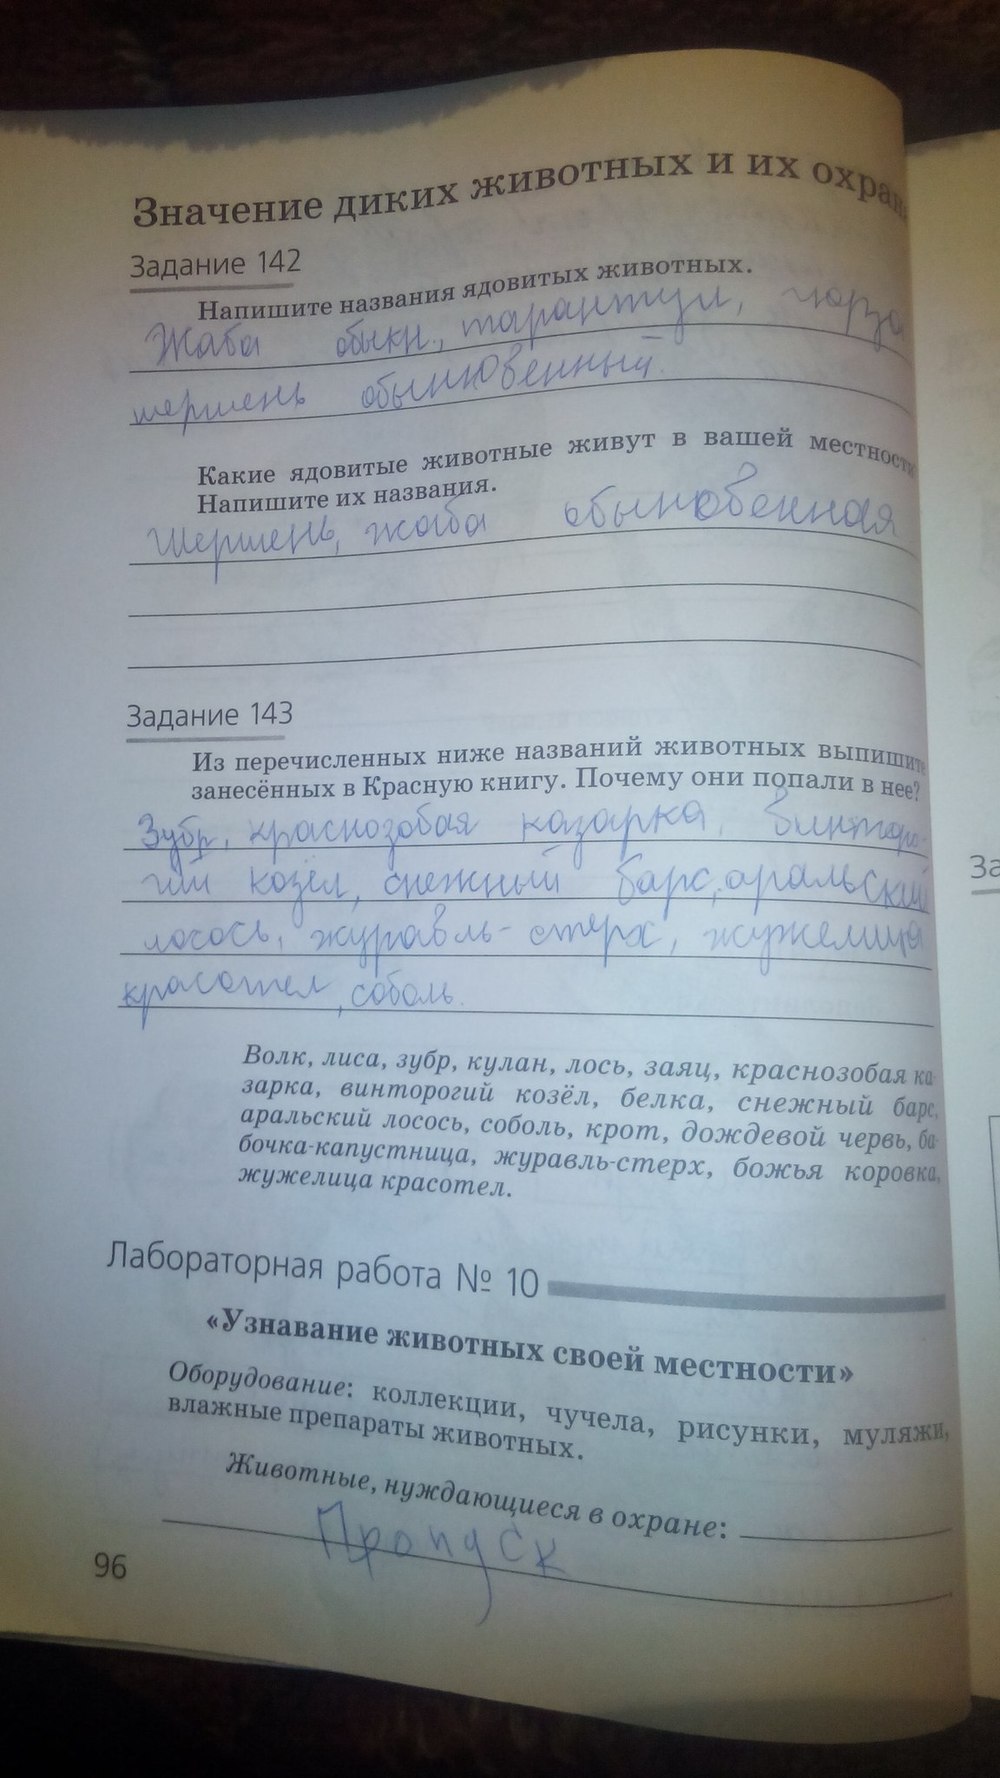 Значение диких животных и их охран
Задание 142
Напишите названия ядовитых животных.
Жаба обыкн., тарантул, гюрза
шершень обыкновенный.
Какие ядовитые животные живут в вашей местности
Напишите их названия.
Шершень, жаба обыкновенная
Задание 143
Из перечисленных ниже названий животных выпишите
занесённых в Красную книгу. Почему они попали в нее?
Зубр, краснозобая казарка, винторо-
гий козёл, снежный барс, аральский
лосось, журавль-стерх, жужелица
красотел, соболь.
Волк, лиса, зубр, кулан, лось, заяц, краснозобая ка-
зарка, винторогий козёл, белка, снежный барс,
аральский лосось, соболь, крот, дождевой червь, ба-
бочка-капустница, журавль-стерх, божья коровка,
жужелица красотел.
Лабораторная работа № 10
«Узнавание животных своей местности»
Оборудование: коллекции, чучела, рисунки, муляжи,
влажные препараты животных.
Животные, нуждающиеся в охране:
Пропуск
96
За